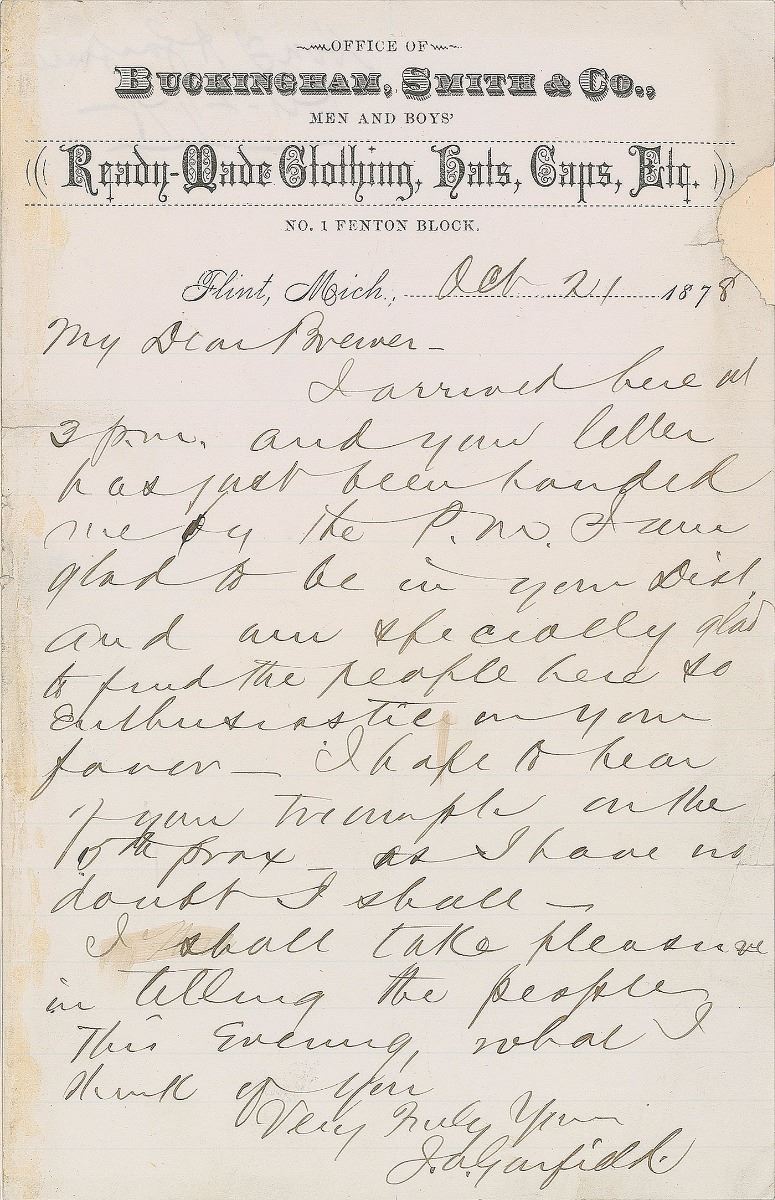 OFFICE OF
BUCKINGHAM, SMITH & CO.,
MEN AND BOYS'
Ready-Made Clothing, Hats, Caps, Etc.
NO. 1 FENTON BLOCK.
Flint, Mich., Oct 21 1878
My Dear Brewer—
I arrived here at
3 p.m. and your letter
has just been handed
me by the P.M. I am
glad to be in your Dist.
and am specially glad
to find the people here so
enthusiastic in your
favor— I hope to hear
of your triumph on the
5th prox— as I have no
doubt I shall—
I shall take pleasure
in telling the people
this Evening, what I
think of you
Very Truly Yours
J.A. Garfield.